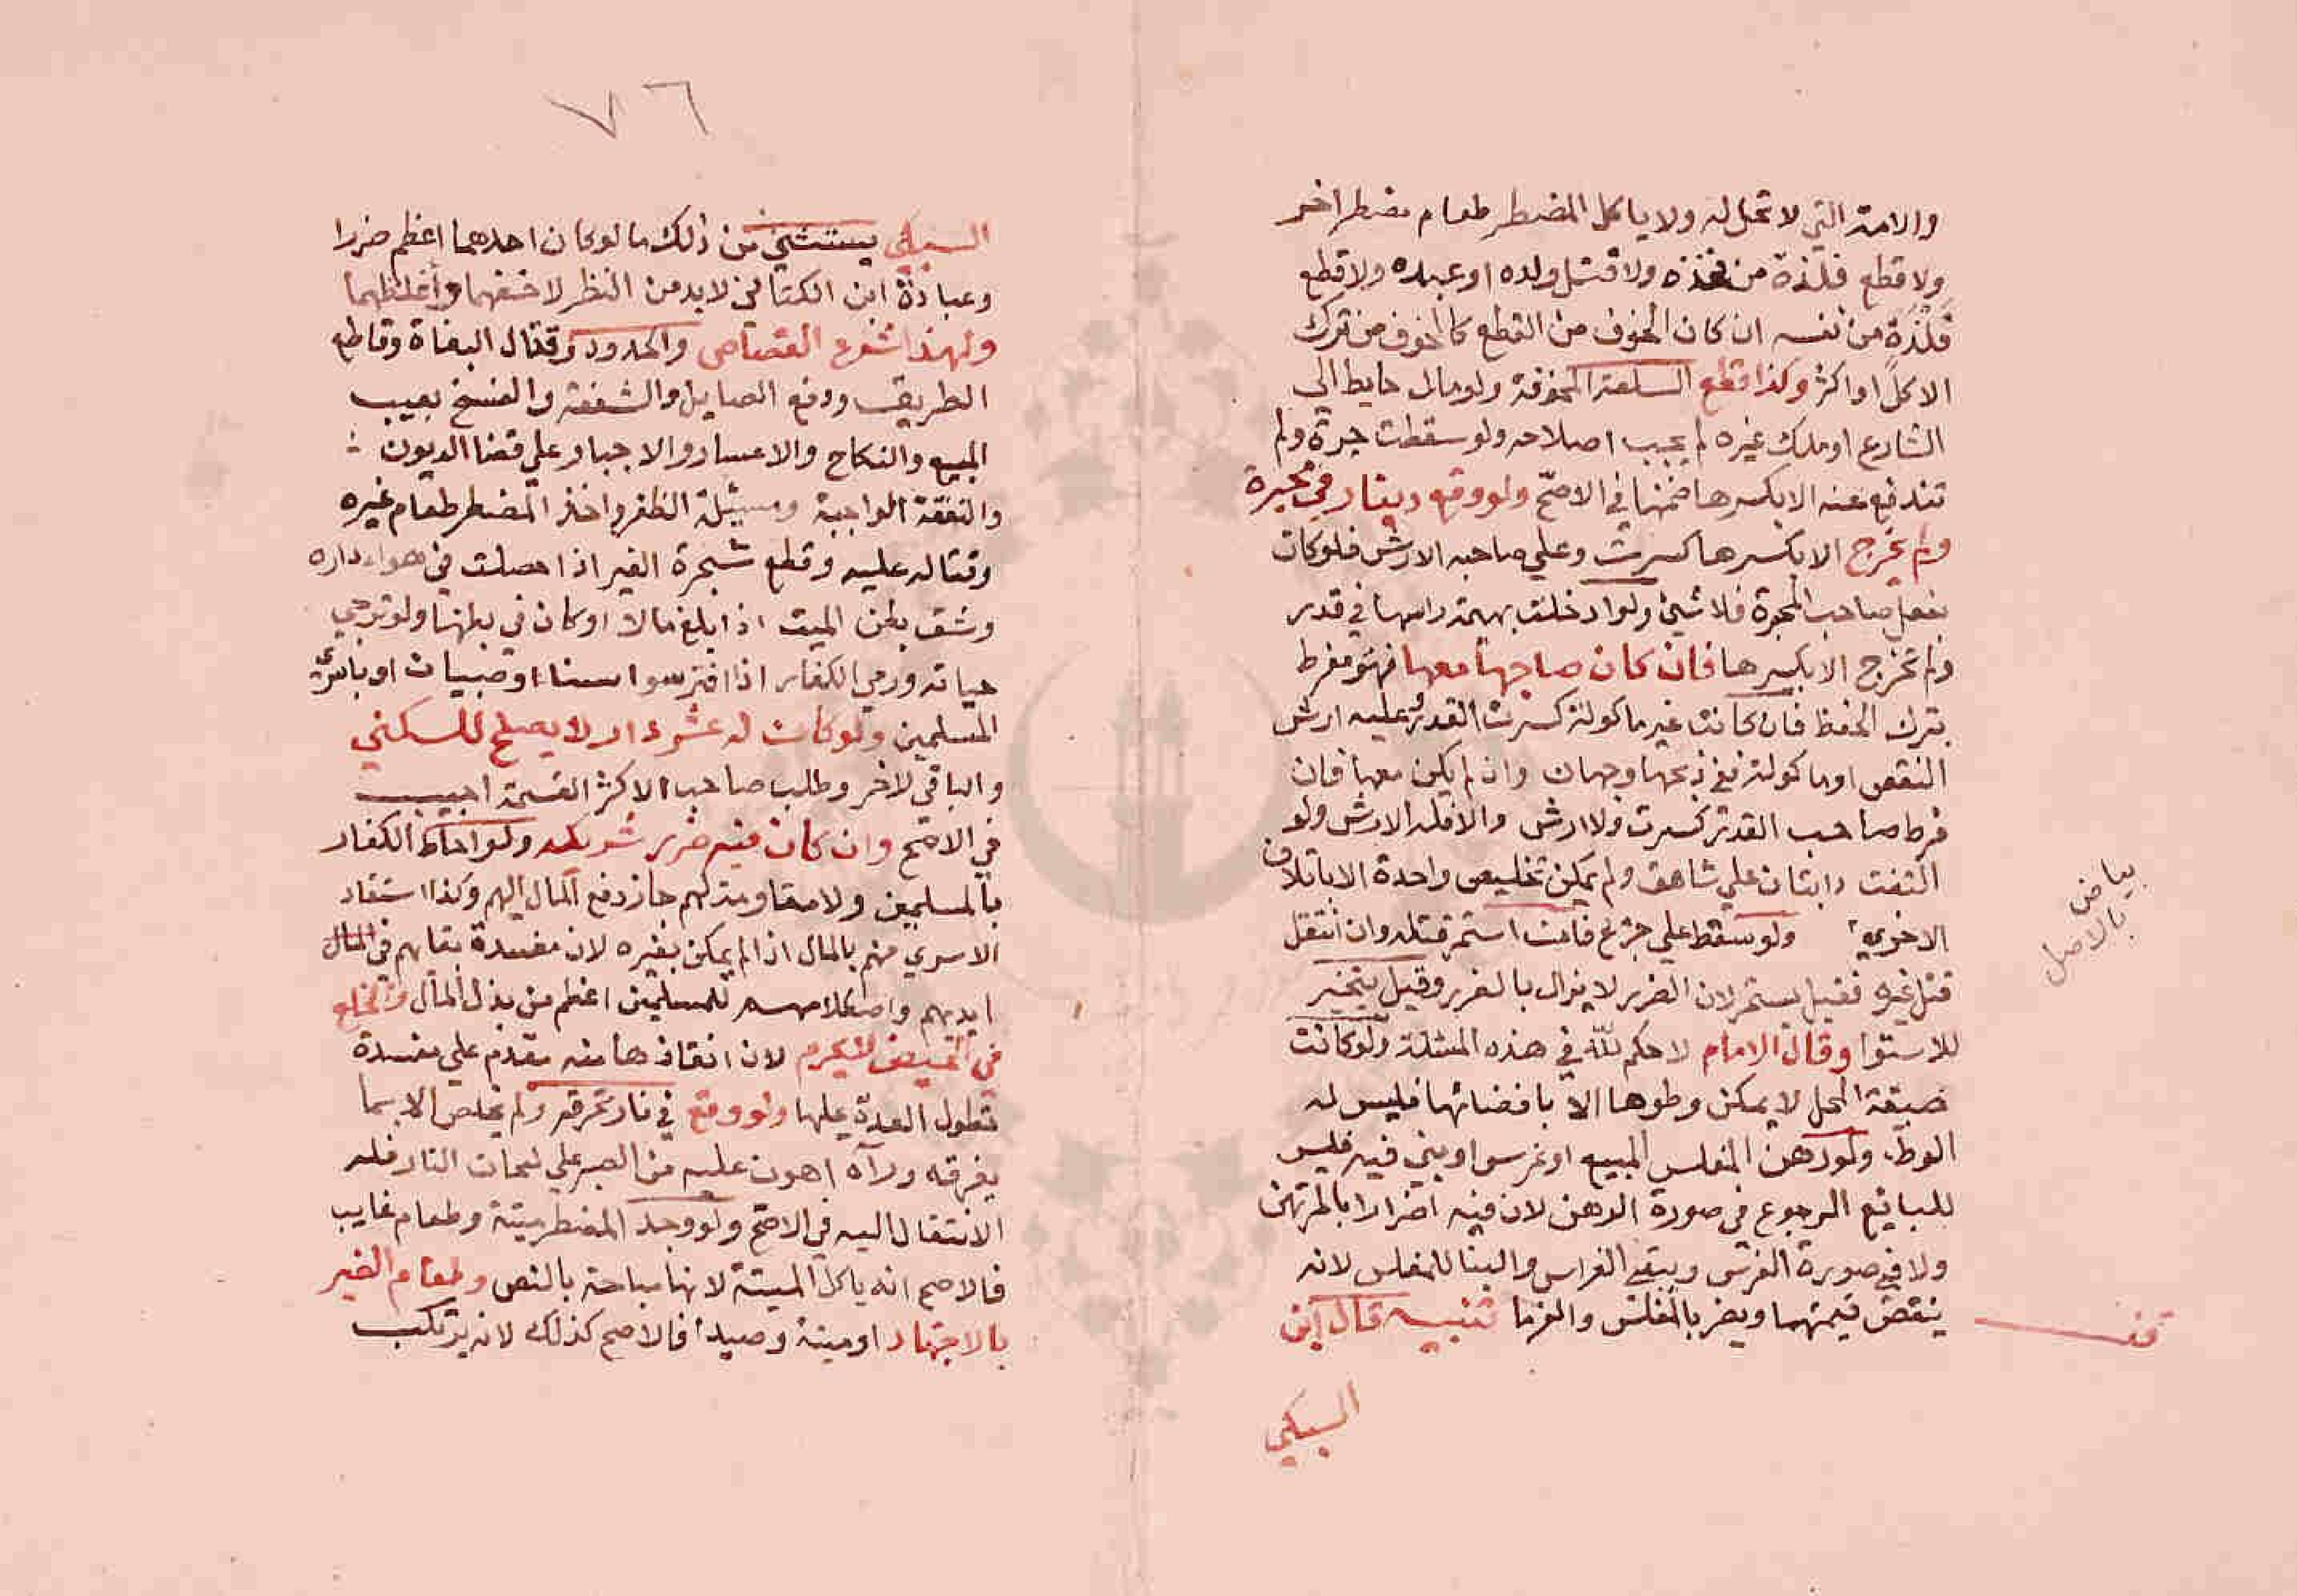 والامة التي لا تحل له ولا ياكل المضطر طعام مضطر اخر
ولا قطع فلذة من فخذه ولا قتل ولده او عبده ولا قطع
فلذة من نفسه ان كان الخوف من القطع كالخوف من ترك
الاكل او اكثر وكذا قطع السلعة المخوفة ولو مال حايط الي
الشارع او ملك غيره لم يجب اصلاحه ولو سقطت جرة ولم
تندفع عنه الا بكسرها ضمنها في الاصح ولو وقع دينار في محبرة
ولم يخرج الا بكسرها كسرت وعلي صاحبه الارش فلو كان
بفعل صاحب المحبرة فلا شئ ولو ادخلت بهيمة راسها في قدر
ولم تخرج الا بكسرها فان كان صاحبها معها فهو مفرط
بترك الحفظ فان كانت غير ماكولة كسرت القدر وعليه ارش
النقص او ماكولة ففي ذبحها وجهان وان لم يكن معها فان
فرط صاحب القدر كسرت ولا ارش والا فله الارش ولو
التفت دابتان علي شاهق ولم يمكن تخليص واحدة الا باتلاف
الاخري ولو سقط علي جريح فان استمر قتله وان انتقل
قتل غيره فقيل يستمر لان الضرر لا يزال بالضرر وقيل يتخير
للاستوا وقال الامام لا حكم لله في هذه المسئلة ولو كانت
ضيقة المحل لا يمكن وطوها الا بافضائها فليس له
الوطء ولو رهن المفلس المبيع او غرس او بني فيه فليس
للبائع الرجوع في صورة الرهن لان فيه اضرارا بالمرتهن
ولا في صورة الغرس ويبقي الغراس والبنا للمفلس لانه
ينقص قيمتهما ويضر بالمفلس والغرما تنبيه قال ابن
السبكي
بياض
بالاصل
قف
٧٦
السبكي يستثني من ذلك ما لو كان احدهما اعظم ضررا
وعبارة ابن الكتاني لا بد من النظر لاخفهما واغلظهما
ولهذا شرع القصاص والحدود وقتال البغاة وقاطع
الطريق ودفع الصايل والشفعة والفسخ بعيب
المبيع والنكاح والاعسار والاجبار علي قضا الديون
والنفقة الواجبة ومسئلة الظفر واخذ المضطر طعام غيره
وقتاله عليه وقطع شجرة الغير اذا حصلت في هواء داره
وشق بطن الميت اذا بلغ مالا او كان في بطنها ولد ترجي
حياته ورمي الكفار اذا تترسوا بنساء او صبيان او باسري
المسلمين ولو كان له عشر دار لا يصلح للسكني
والباقي لاخر وطلب صاحب الاكثر القسمة اجيب
في الاصح وان كان فيه ضرر شريكه ولو احاط الكفار
بالمسلمين ولا مقاومة لهم جاز دفع المال اليهم وكذا استنقاذ
الاسري منهم بالمال اذا لم يمكن بغيره لان مفسدة بقايهم في
ايديهم واصطلامهم للمسلمين اعظم من بذل المال والخلع
في الحيض لا يحرم لان انقاذها منه مقدم علي مفسدة
تطول العدة عليها ولو وقع في نار تحرقه ولم يخلص الا بما
يغرقه ورآه اهون عليه من الصبر علي لفحات النار فله
الانتقال اليه في الاصح ولو وجد المضطر ميتة وطعام غايب
فالاصح انه ياكل الميتة لانها مباحة بالنص وطعام الغير
بالاجتهاد او ميتة وصيدا فالاصح كذلك لانه يرتكب